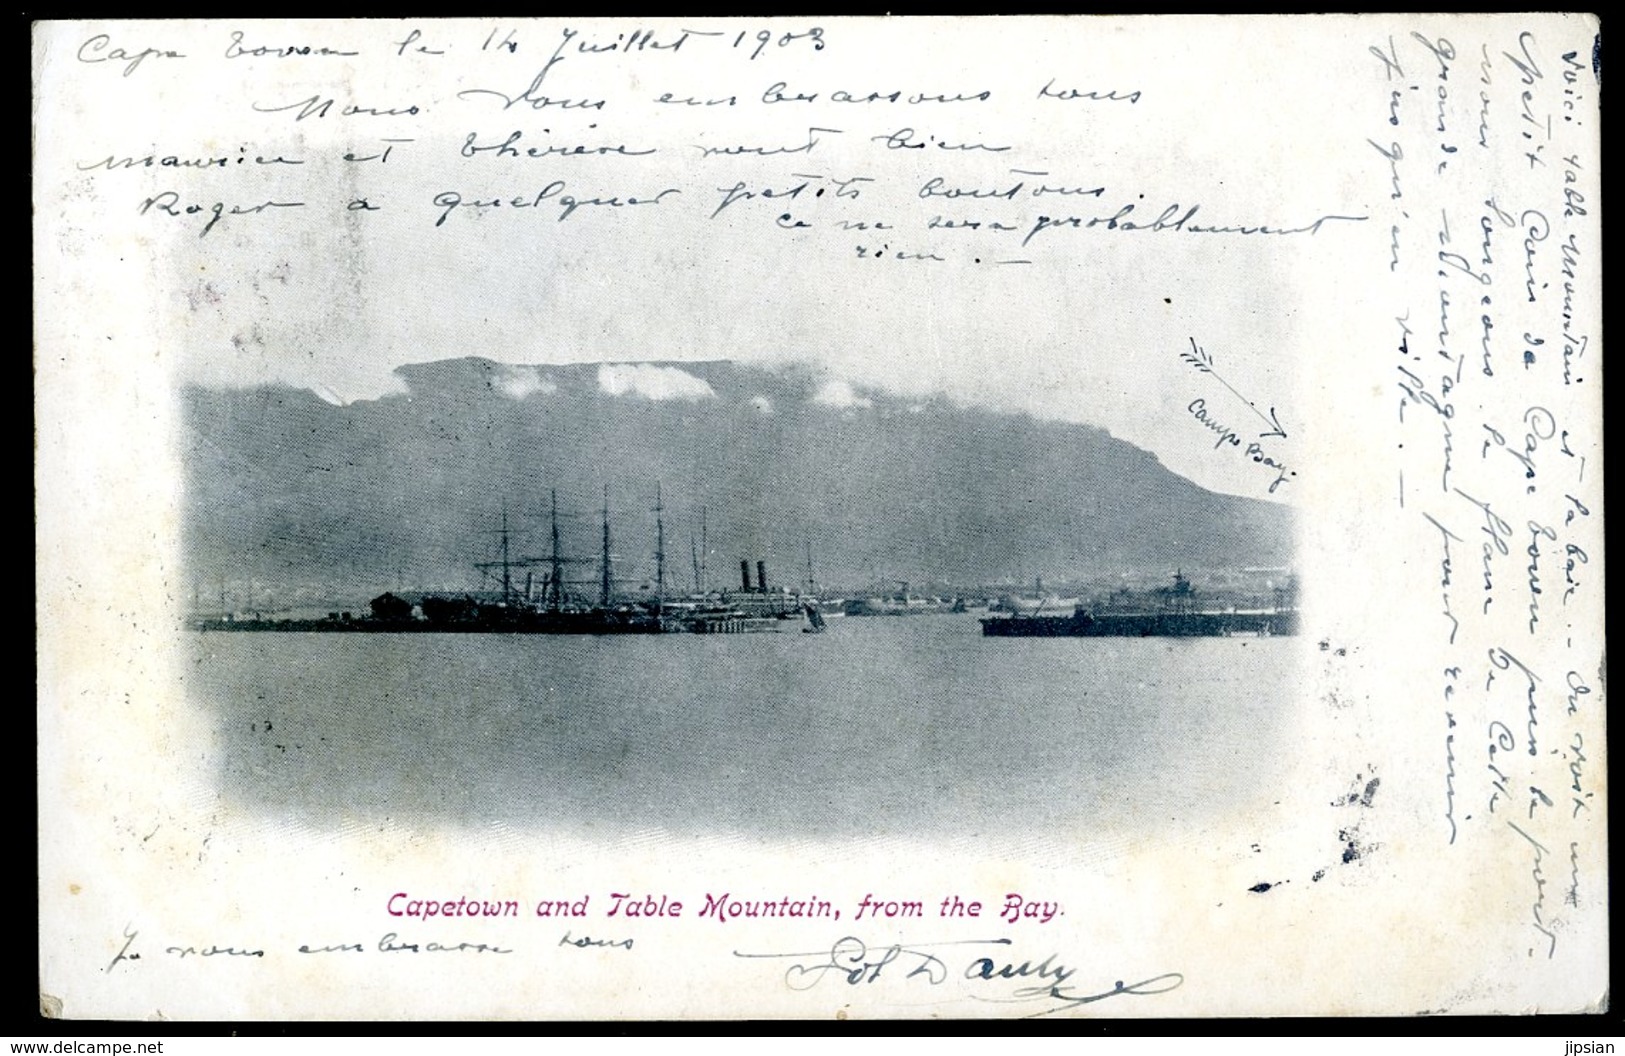 Cape Town le 14 Juillet 1903
Nous vous embrassons tous
Maurice et Thérèse vont bien
Roger a quelques petits boutons.
Ce ne sera probablement
rien. —
Voici table Mountain et la baie. - On voit un
petit coin de Cape Town puis le port.
nous longeons le flanc de cette
grande Montagne pour revenir
jusqu'en ville. —
Camps Bay.
Capetown and Table Mountain, from the Bay.
Je vous embrasse tous
www.delcampe.net
jipsian